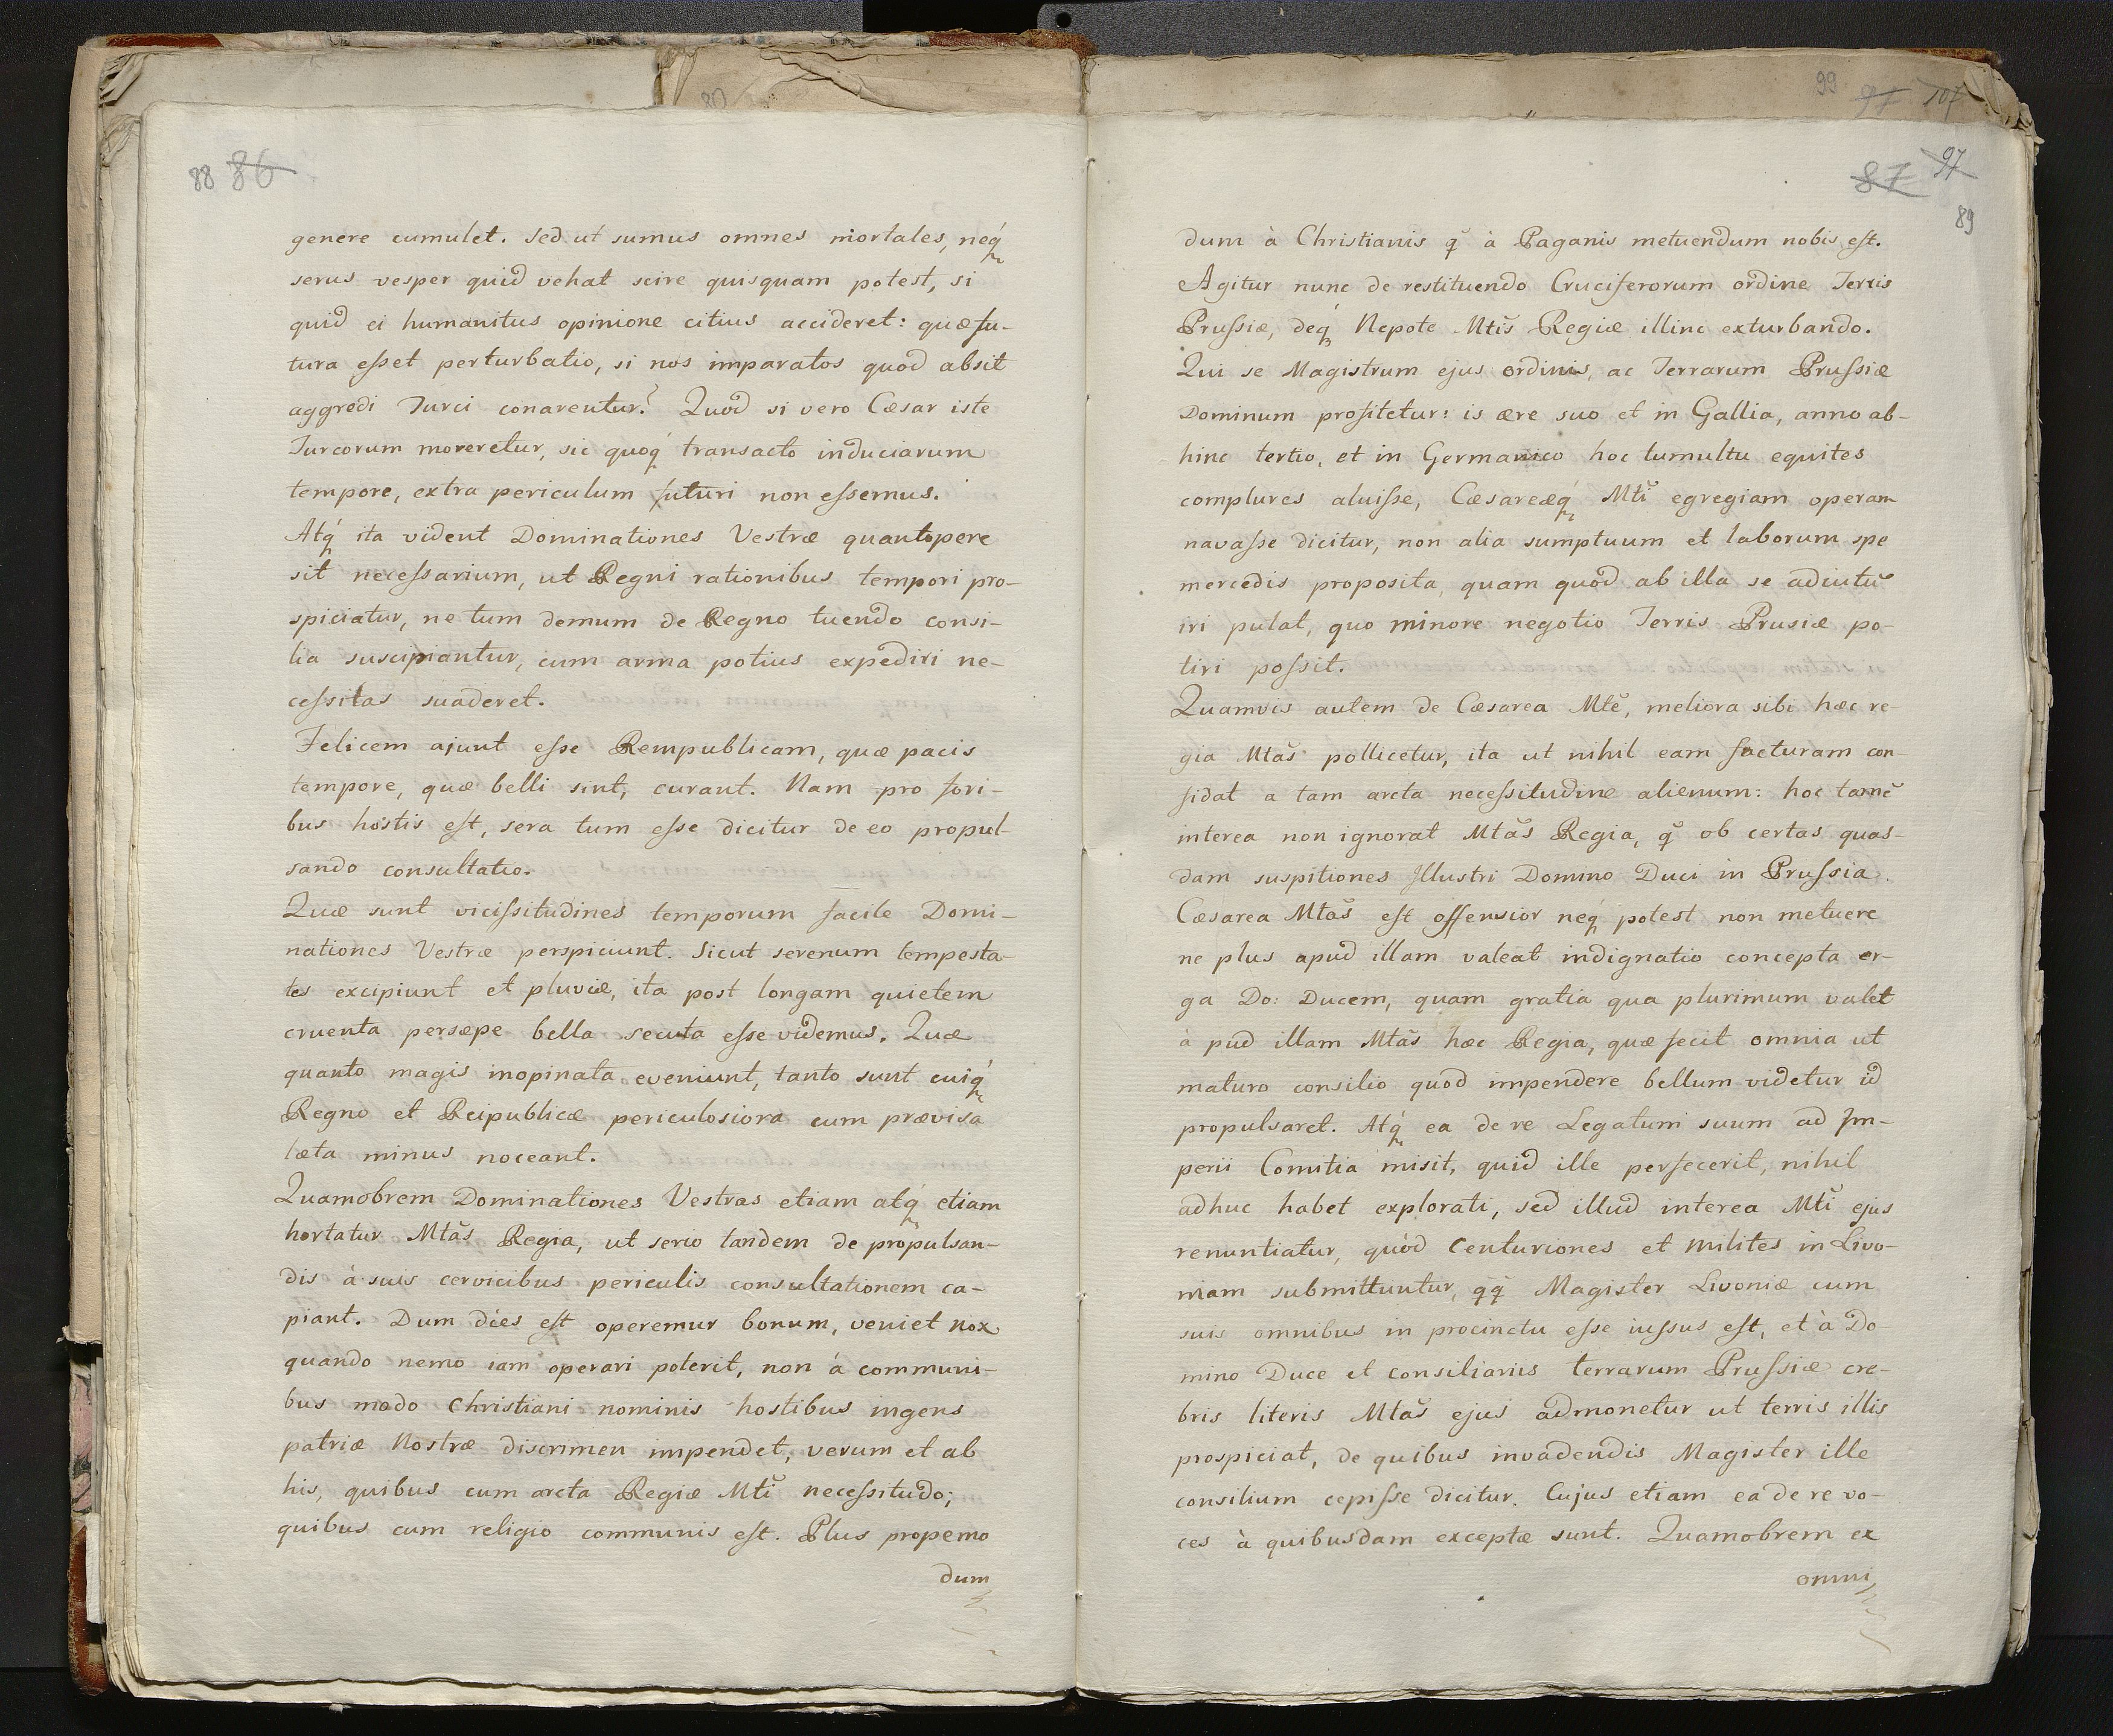 88 86
genere cumulet. Sed ut sumus omnes mortales, neq́
serus vesper quid vehat scire quisquam potest, si
quid ei humanitus opinione citius accideret: quæ fu-
tura eſset perturbatio, si nos imparatos quod absit
aggredi Turci conarentur? Quod si vero Cæsar iste
Turcorum moreretur, sic quoq́ transacto induciarum
tempore, extra periculum futuri non eſsemus.
Atq́ ita vident Dominationes Vestræ quantopere
sit neceſsarium, ut Regni rationibus tempori pro-
spiciatur, ne tum demum de Regno tuendo consi-
lia suscipiantur, cum arma potius expediri ne-
ceſsitas suaderet.
Felicem ajunt eſse Rempublicam, quæ pacis
tempore, quæ belli sint, curant. Nam pro fori-
bus hostis eſt, sera tum eſse dicitur de eo propul-
sando consultatio.
Quæ sunt viciſsitudines temporum facile Domi-
nationes Vestræ perspiciunt. Sicut serenum tempesta-
tes excipiunt et pluviæ, ita post longam quietem
cruenta persæpe bella secuta eſse videmus. Quæ
quanto magis inopinata eveniunt, tanto sunt cuiq́
Regno et Reipublicæ periculosiora cum prævisa
læta minus noceant.
Quamobrem Dominationes Vestras etiam atq́ etiam
hortatur Mtãs Regia, ut serio tandem de propulsan-
dis à suis cervicibus periculis consultationem ca-
piant. Dum dies eſt operemur bonum, veniet nox
quando nemo iam operari poterit, non à communi-
bus modo Christiani nominis hostibus ingens
patriæ Nostræ discrimen impendet, verum et ab
his, quibus cum arcta Regiæ Mtĩ neceſsitudo;
quibus cum religio communis eſt. Plus propemo
dum
99 97 107
87 97
89
dum à Christianis q̃ à Paganis metuendum nobis eſt.
Agitur nunc de restituendo Cruciferorum ordine Terris
Pruſsiæ, deq́ Nepote Mtĩs Regiæ illinc exturbando.
Qui se Magistrum ejus ordinis, ac Terrarum Pruſsiæ
Dominum profitetur: is ære suo et in Gallia, anno ab-
hinc tertio, et in Germanico hoc tumultu equites
complures aluiſse, Cæsareæq́ Mtĩ egregiam operam
navaſse dicitur, non alia sumptuum et laborum spe
mercedis proposita, quam quod ab illa se adiutũ
iri putat, quo minore negotio Terris Prusiæ po-
tiri poſsit.
Quamvis autem de Cæsarea Mtẽ, meliora sibi hæc re-
gia Mtãs pollicetur, ita ut nihil eam facturam con-
fidat a tam arcta neceſsitudine alienum: hoc tamẽ
interea non ignorat Mtãs Regia, q̃ ob certas quas-
dam suspitiones Jllustri Domino Duci in Pruſsia
Cæsarea Mtãs eſt offensior neq́ potest non metuere
ne plus apud illam valeat indignatio concepta er-
ga Do: Ducem, quam gratia qua plurimum valet
à pud illam Mtãs hæc Regia, quæ fecit omnia ut
maturo consilio quod impendere bellum videtur id
propulsaret. Atq́ ea de re Legatum suum ad Jm-
perii Comitia misit, quid ille perfecerit, nihil
adhuc habet explorati, sed illud interea Mtĩ ejus
renuntiatur, quòd Centuriones et Milites in Livo-
niam submittuntur, q̃q́ Magister Livoniæ cum
suis omnibus in procinctu eſse iuſsus eſt, et à Do-
mino Duce et consiliariis terrarum Pruſsiæ cre-
bris literis Mtãs ejus admonetur ut terris illis
prospiciat, de quibus invadendis Magister ille
consilium cepiſse dicitur. Cujus etiam ea de re vo-
ces à quibusdam exceptæ sunt. Quamobrem ex
omni